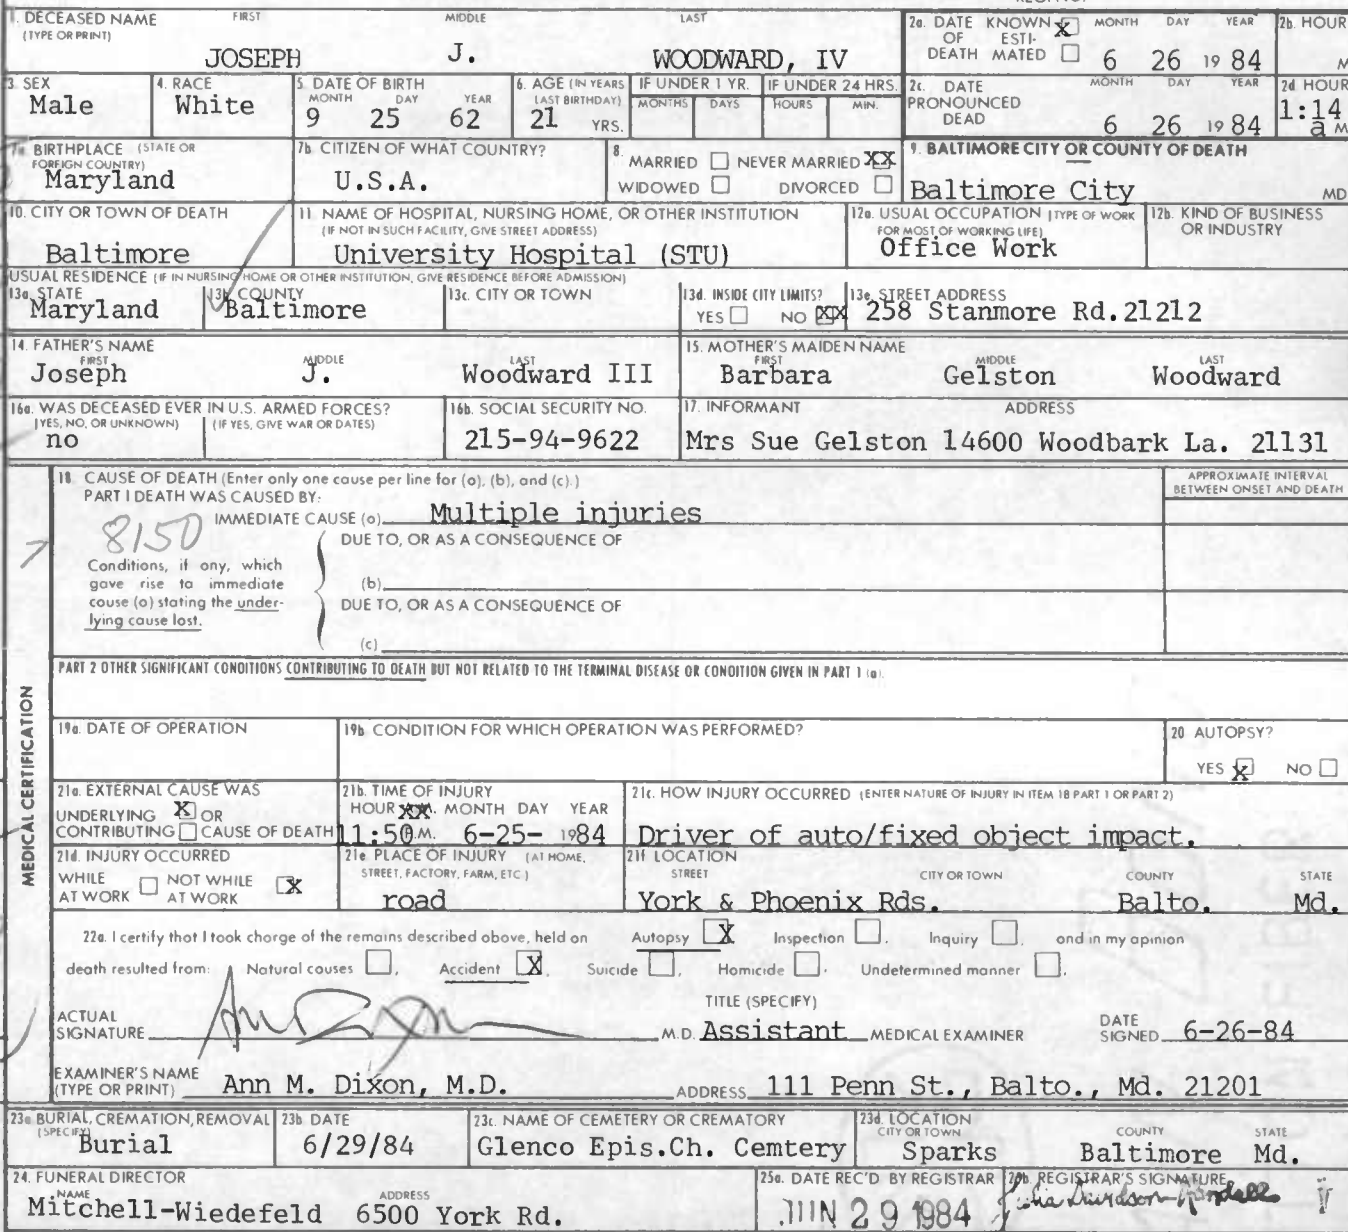 1. DECEASED NAME FIRST MIDDLE LAST
(TYPE OR PRINT)
JOSEPH J. WOODWARD, IV
2a. DATE OF DEATH KNOWN X ESTIMATED MONTH DAY YEAR
6 26 19 84
2b. HOUR
M
3. SEX
Male
4. RACE
White
5. DATE OF BIRTH
MONTH DAY YEAR
9 25 62
6. AGE (IN YEARS LAST BIRTHDAY)
21 YRS.
IF UNDER 1 YR.
MONTHS DAYS
IF UNDER 24 HRS.
HOURS MIN.
2c. DATE PRONOUNCED DEAD MONTH DAY YEAR
6 26 19 84
2d HOUR
1:14
a M
7a. BIRTHPLACE (STATE OR
FOREIGN COUNTRY)
Maryland
7b. CITIZEN OF WHAT COUNTRY?
U.S.A.
8.
MARRIED NEVER MARRIED XX
WIDOWED DIVORCED
9. BALTIMORE CITY OR COUNTY OF DEATH
Baltimore City MD
10. CITY OR TOWN OF DEATH
Baltimore
11. NAME OF HOSPITAL, NURSING HOME, OR OTHER INSTITUTION
(IF NOT IN SUCH FACILITY, GIVE STREET ADDRESS)
University Hospital (STU)
12a. USUAL OCCUPATION (TYPE OF WORK
FOR MOST OF WORKING LIFE)
Office Work
12b. KIND OF BUSINESS
OR INDUSTRY
USUAL RESIDENCE (IF IN NURSING HOME OR OTHER INSTITUTION, GIVE RESIDENCE BEFORE ADMISSION)
13a. STATE
Maryland
13b. COUNTY
Baltimore
13c. CITY OR TOWN
13d. INSIDE CITY LIMITS?
YES NO XX
13e. STREET ADDRESS
258 Stanmore Rd.21212
14. FATHER'S NAME
FIRST MIDDLE LAST
Joseph J. Woodward III
15. MOTHER'S MAIDEN NAME
FIRST MIDDLE LAST
Barbara Gelston Woodward
16a. WAS DECEASED EVER IN U.S. ARMED FORCES?
(YES, NO, OR UNKNOWN) (IF YES, GIVE WAR OR DATES)
no
16b. SOCIAL SECURITY NO.
215-94-9622
17. INFORMANT ADDRESS
Mrs Sue Gelston 14600 Woodbark La. 21131
MEDICAL CERTIFICATION
18. CAUSE OF DEATH (Enter only one cause per line for (a), (b), and (c).)
PART I DEATH WAS CAUSED BY:
IMMEDIATE CAUSE (a) Multiple injuries
APPROXIMATE INTERVAL
BETWEEN ONSET AND DEATH
8150
DUE TO, OR AS A CONSEQUENCE OF
Conditions, if any, which
gave rise to immediate
cause (a) stating the under-
lying cause last.
(b)
DUE TO, OR AS A CONSEQUENCE OF
(c)
PART 2 OTHER SIGNIFICANT CONDITIONS CONTRIBUTING TO DEATH BUT NOT RELATED TO THE TERMINAL DISEASE OR CONDITION GIVEN IN PART 1 (a).
19a. DATE OF OPERATION
19b. CONDITION FOR WHICH OPERATION WAS PERFORMED?
20 AUTOPSY?
YES X NO
21a. EXTERNAL CAUSE WAS
UNDERLYING X OR
CONTRIBUTING CAUSE OF DEATH
21b. TIME OF INJURY
HOUR XX. MONTH DAY YEAR
11:50 P.M. 6-25- 1984
21c. HOW INJURY OCCURRED (ENTER NATURE OF INJURY IN ITEM 18 PART 1 OR PART 2)
Driver of auto/fixed object impact.
21d. INJURY OCCURRED
WHILE AT WORK NOT WHILE AT WORK X
21e. PLACE OF INJURY (AT HOME,
STREET, FACTORY, FARM, ETC.)
road
21f. LOCATION
STREET CITY OR TOWN COUNTY STATE
York & Phoenix Rds. Balto. Md.
22a. I certify that I took charge of the remains described above, held on Autopsy X Inspection , Inquiry , and in my opinion
death resulted from: Natural causes , Accident X , Suicide , Homicide , Undetermined manner ,
ACTUAL
SIGNATURE
TITLE (SPECIFY)
M.D. Assistant MEDICAL EXAMINER
DATE
SIGNED 6-26-84
EXAMINER'S NAME
(TYPE OR PRINT) Ann M. Dixon, M.D. ADDRESS 111 Penn St., Balto., Md. 21201
23a. BURIAL, CREMATION, REMOVAL
(SPECIFY)
Burial
23b. DATE
6/29/84
23c. NAME OF CEMETERY OR CREMATORY
Glenco Epis.Ch. Cemtery
23d. LOCATION
CITY OR TOWN COUNTY STATE
Sparks Baltimore Md.
24. FUNERAL DIRECTOR
NAME ADDRESS
Mitchell-Wiedefeld 6500 York Rd.
25a. DATE REC'D BY REGISTRAR
JUN 29 1984
25b. REGISTRAR'S SIGNATURE
Julia Davidson-Randall